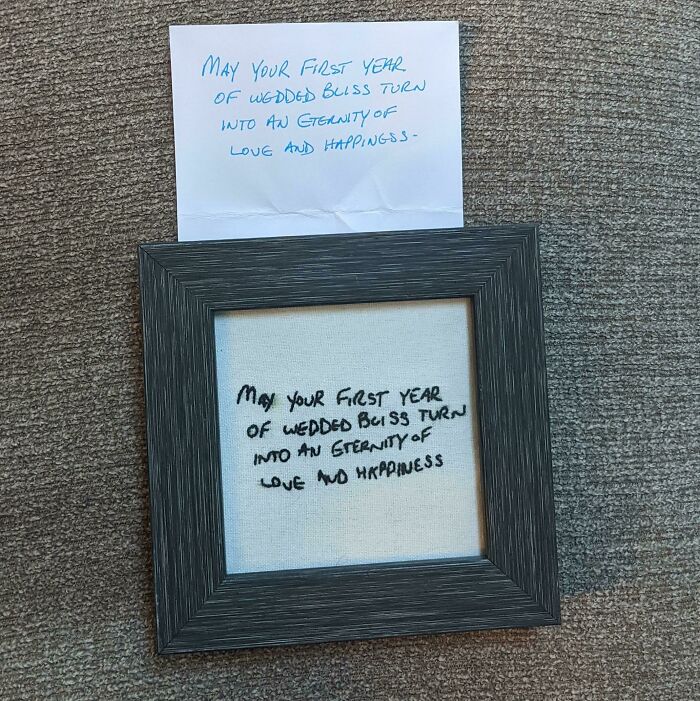 MAY YOUR FIRST YEAR
OF WEDDED BLISS TURN
INTO AN ETERNITY OF
LOVE AND HAPPINESS-
MAY YOUR FIRST YEAR
OF WEDDED BLISS TURN
INTO AN ETERNITY OF
LOVE AND HAPPINESS